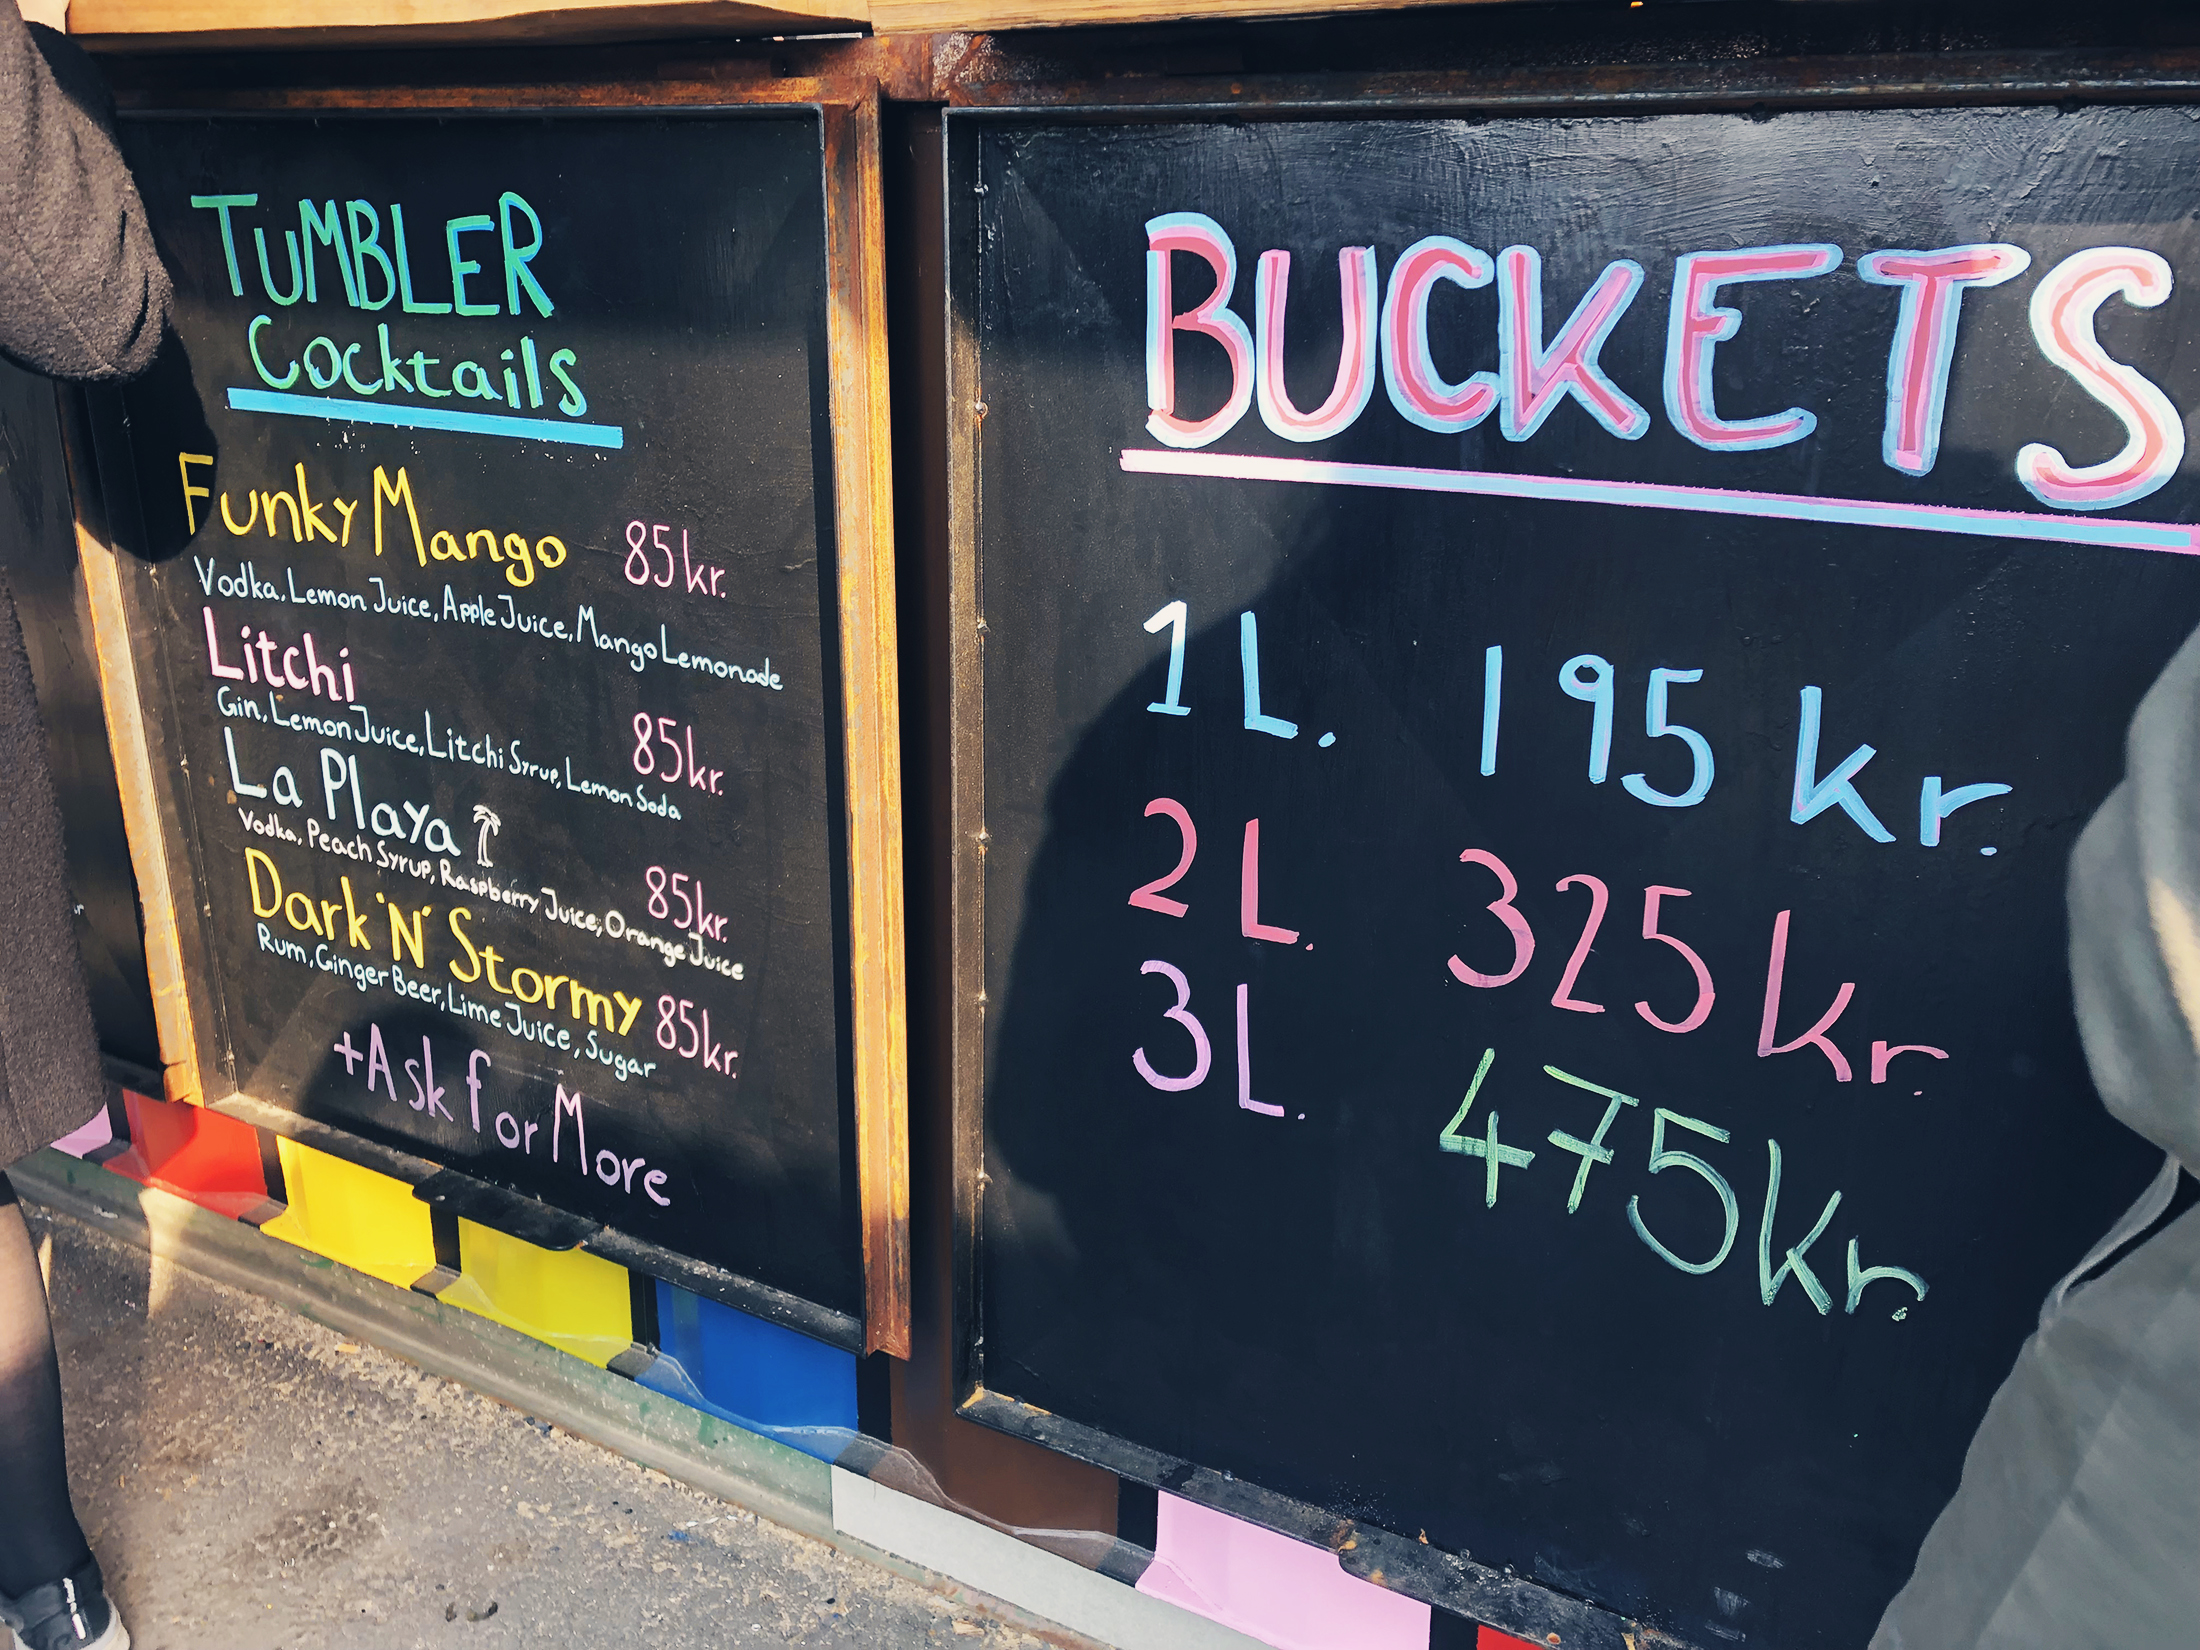 TUMBLER
Cocktails
Funky Mango 85kr.
Vodka, Lemon Juice, Apple Juice, Mango Lemonade
Litchi 85kr.
Gin, Lemon Juice, Litchi Syrup, Lemon Soda
La Playa 85kr.
Vodka, Peach Syrup, Raspberry Juice, Orange Juice
Dark 'N' Stormy 85kr.
Rum, Ginger Beer, Lime Juice, Sugar
+Ask for More
BUCKETS
1 L. 195 kr.
2 L. 325 kr.
3 L. 475 kr.